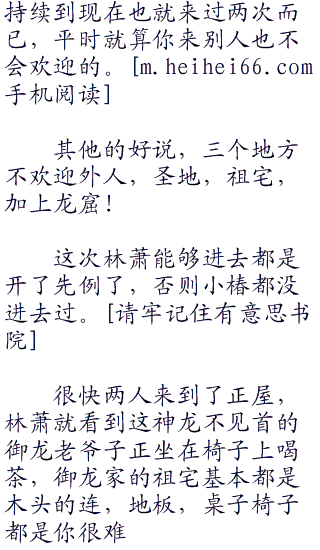 持续到现在也就来过两次而
已，平时就算你来别人也不
会欢迎的。[m.heihei66.com
手机阅读]
其他的好说，三个地方
不欢迎外人，圣地，祖宅，
加上龙窟！
这次林萧能够进去都是
开了先例了，否则小椿都没
进去过。[请牢记住有意思书
院]
很快两人来到了正屋，
林萧就看到这神龙不见首的
御龙老爷子正坐在椅子上喝
茶，御龙家的祖宅基本都是
木头的连，地板，桌子椅子
都是你很难